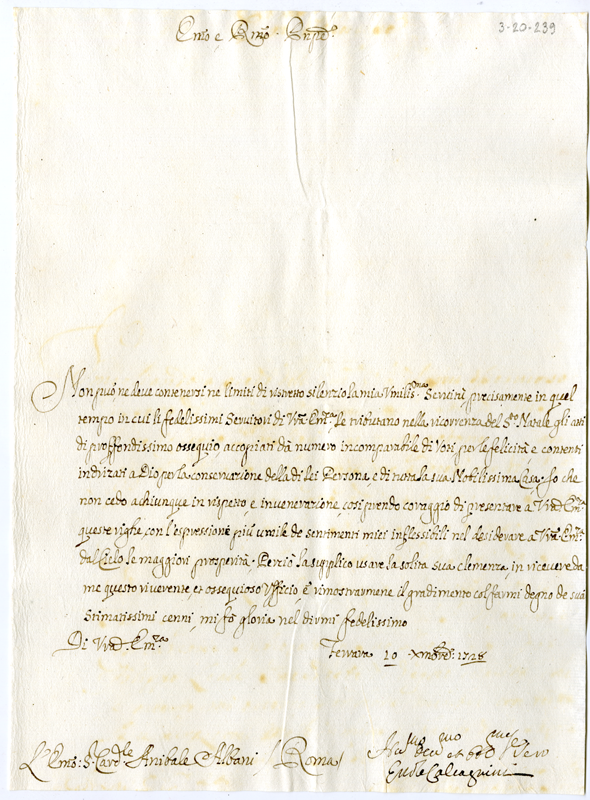 3-20-239
Em̃o e Rm̃o Sig.r
Non può, ne deve contenersi ne limiti di ristretto silenzio la mia Vmilis.ma Servitù, precisamente in quel
tempo in cui li fedelissimi Servitori di Vr̃a Em.a le tributano nella ricorrenza del S.to Natale gli atti
di proffondissimo ossequio accopiati dà numero incomparabile di Voti per le felicità e contenti
indrizati a Dio per la conservazione della di lei Persona, e di tutta la sua Nobilissima Casa; Io che
non cedo a chiunque in rispetto, e in venerazione, così prendo coraggio di presentare a Vr̃a Em.a
queste righe con l'espressione più umile de sentimenti miei inflessibili nel desiderare a Vr̃a Em.a
dal Cielo le maggiori prosperità. Perciò la supplico usare la solita sua clemenza, in ricevere da
me questo riverente, et ossequioso Vfficio, e rimostrarmene il gradimento col farmi degno de suoi
Stimatissimi cenni, mi fò gloria nel dirmi fedelissimo
Di Vr̃a Em.a
Ferrara 10 Xmbre: 1728
L'Em̃o: S. Card.le Anibale Albani / Roma /
Hu.mo et Ser.re
Calcagnini